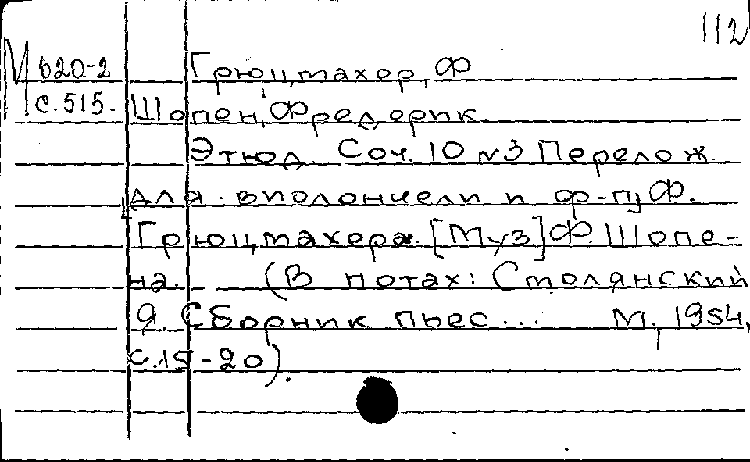 112
М 620-2 Грюцмахер, Ф
с. 515. Шопен, Фредерик.
Этюд. Соч. 10 №3 Перелож.
для виолончели и ф-п, Ф.
Грюцмахера. [Муз] Ф. Шопе-
на. (В нотах: Столянский
Сборник пьес... М., 1954,
с. 15-20).